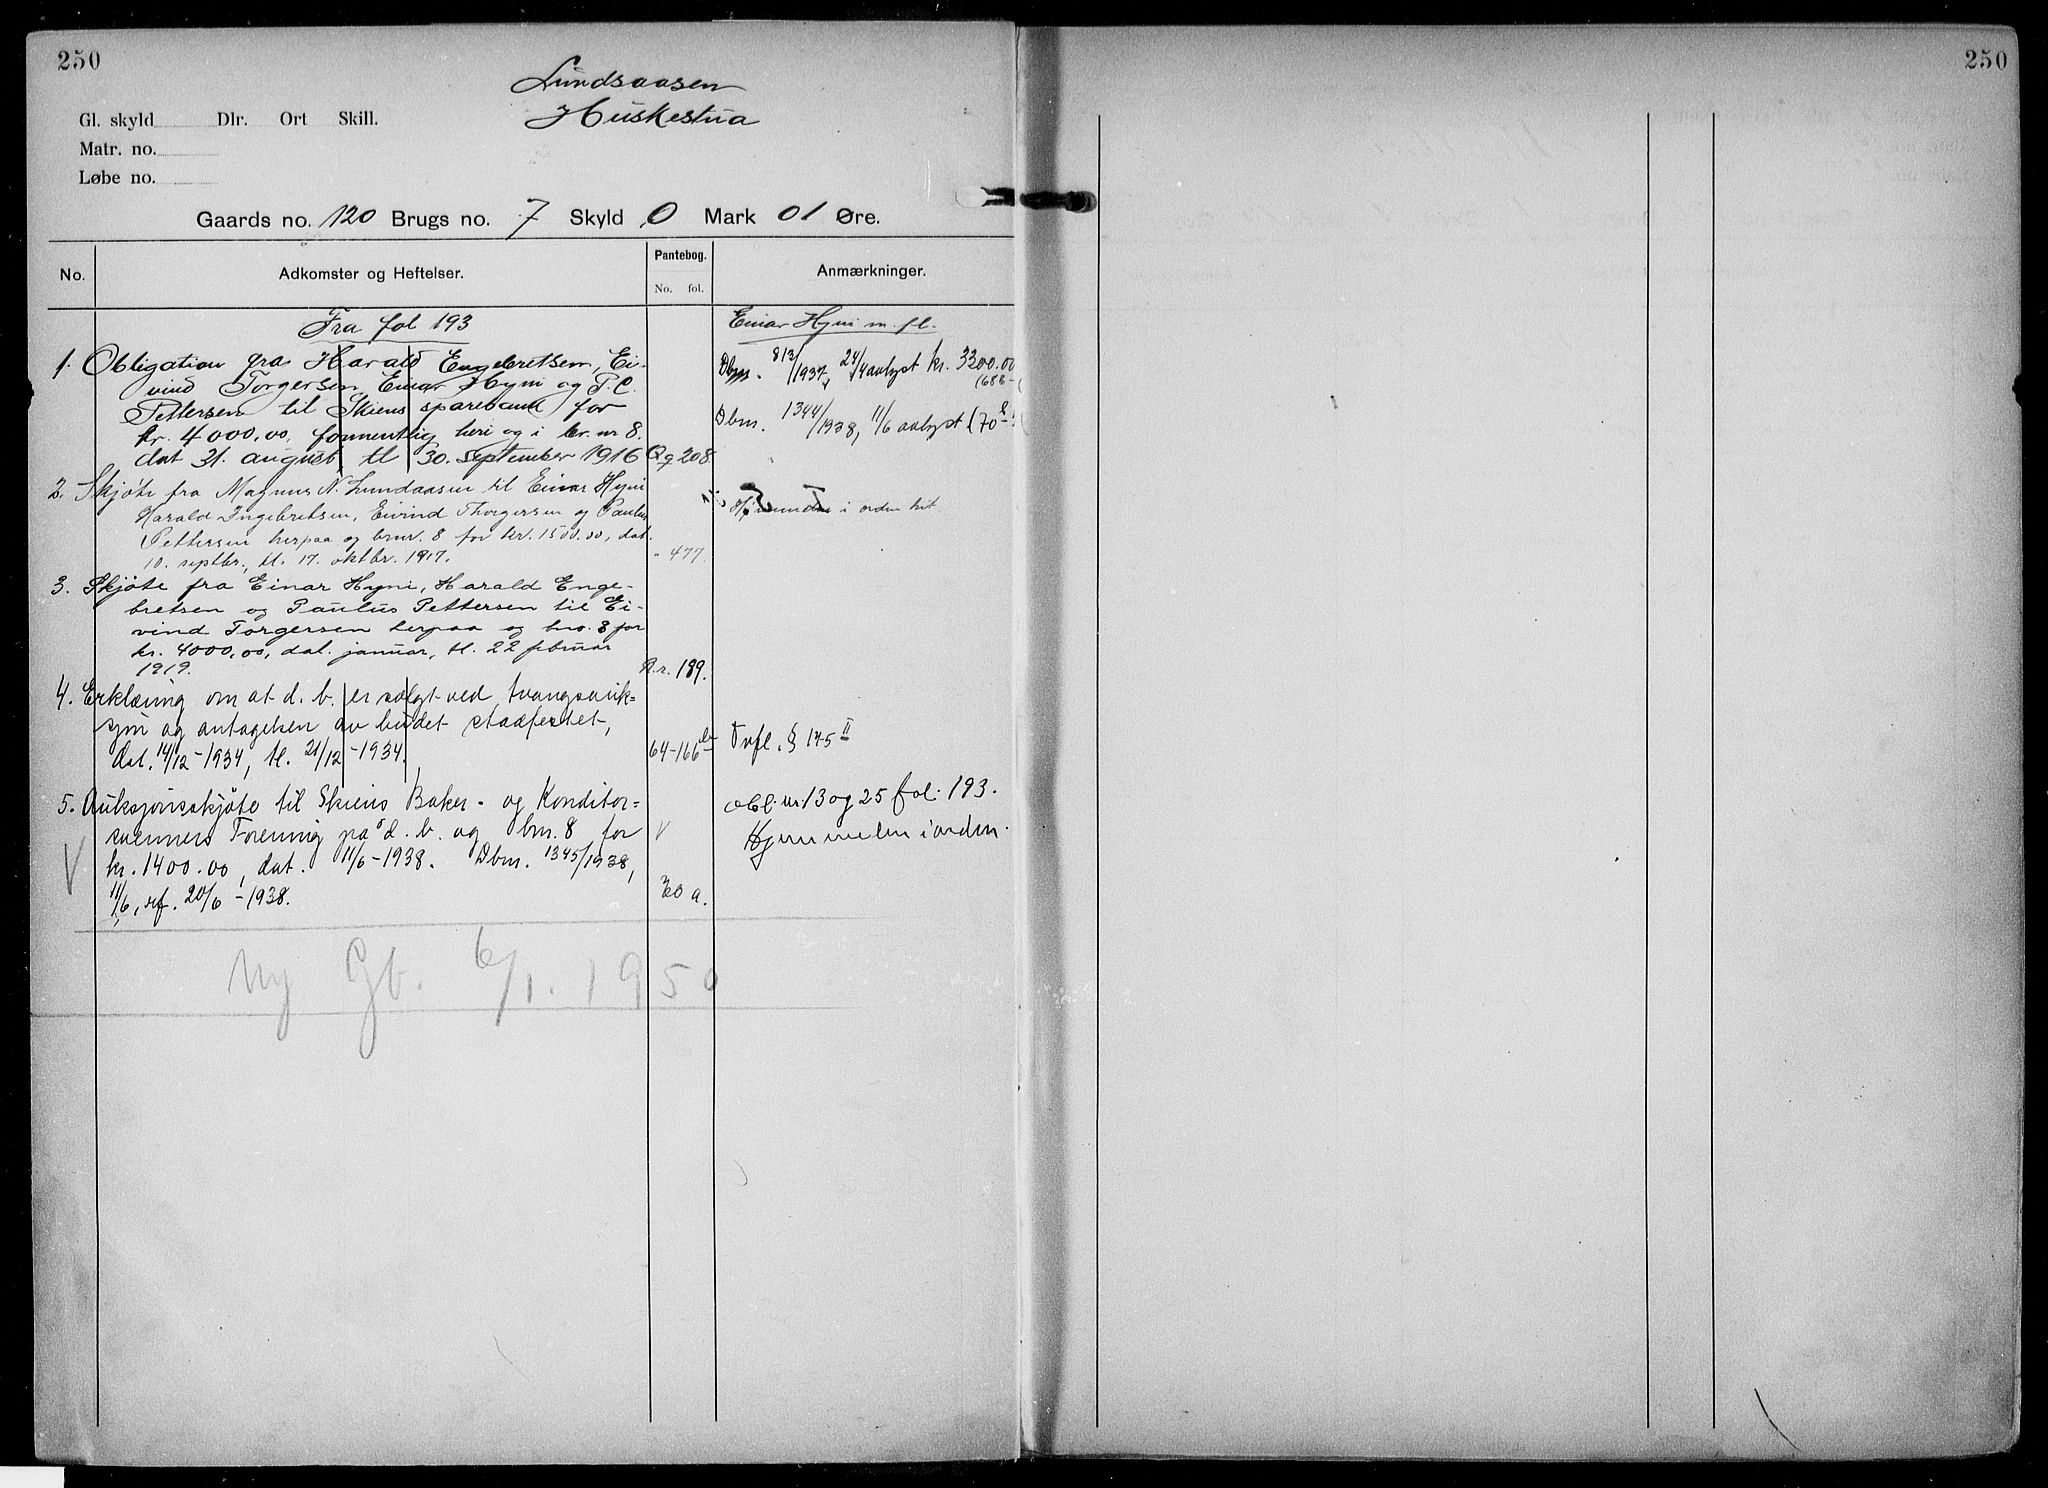 250
250
Lundsaasen
Huskestua
Gl. skyld Dlr. Ort Skill.
Matr. no.
Løbe no.
Gaards no. 120 Brugs no. 7 Skyld 0 Mark 01 Øre.
No. Adkomster og Heftelser. Pantebog. No. fol. Anmærkninger.
Fra fol 193
Einar Hyni m. fl.
1. Obligation fra Harald Engebretsen, Ei-
vind Torgersen, Einar Hyni og P. C.
Pettersen til Skiens sparebank for
kr. 4000,00, formentlig heri og i br. nr 8.
dat 31. august tl 30. september 1916 Q q 208.
Dbnr. 813/1937, 24/4 avlyst kr. 3300.00
(688-
Dbnr. 1344/1938, 11/6 avlyst (70
2. Skjöte fra Magnus N. Lundaasen til Einar Hyni
Harald Ingebretsen, Eivind Thorgersen og Paulus
Pettersen herpaa og brnr. 8 for kr. 1500.00, dat.
10. septbr., tl. 17. oktbr. 1917. " 477.
Hjemmelen i orden hit
3. Skjöte fra Einar Hyni, Harald Enge-
bretsen og Paulus Pettersen til Ei-
vind Torgersen herpaa og bno. 8 for
kr. 4000,00, dat. januar, tl. 22 februar
1919. R.r. 189.
4. Erklæring om at d. b. er solgt ved tvangsauk=
sjon og antagelsen av budet stadfestet,
dat. 14/12-1934, tl. 21/12-1934. 64-166
Tvfl. § 145 II
5. Auksjonsskjöte til Skiens Baker- og Konditor=
svenners Forening på d. b. og bnr. 8 for V
kr. 1400.00, dat. 11/6-1938. Dbnr. 1345/1938,
11/6, rf. 20/6-1938. 70 a.
V
obl. nr. 13 og 25 fol. 193.
Hjemmelen i orden.
Ny Gb. 6/1. 1950